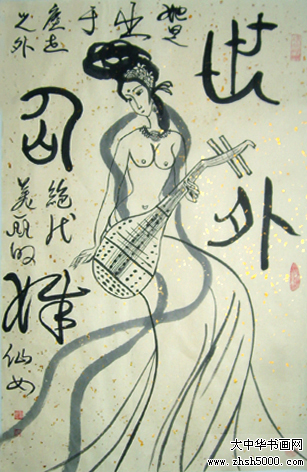 世外
名姝
她是
于
之外
绝代
美丽的
仙女
大中华书画网
www.zhsh5000.com